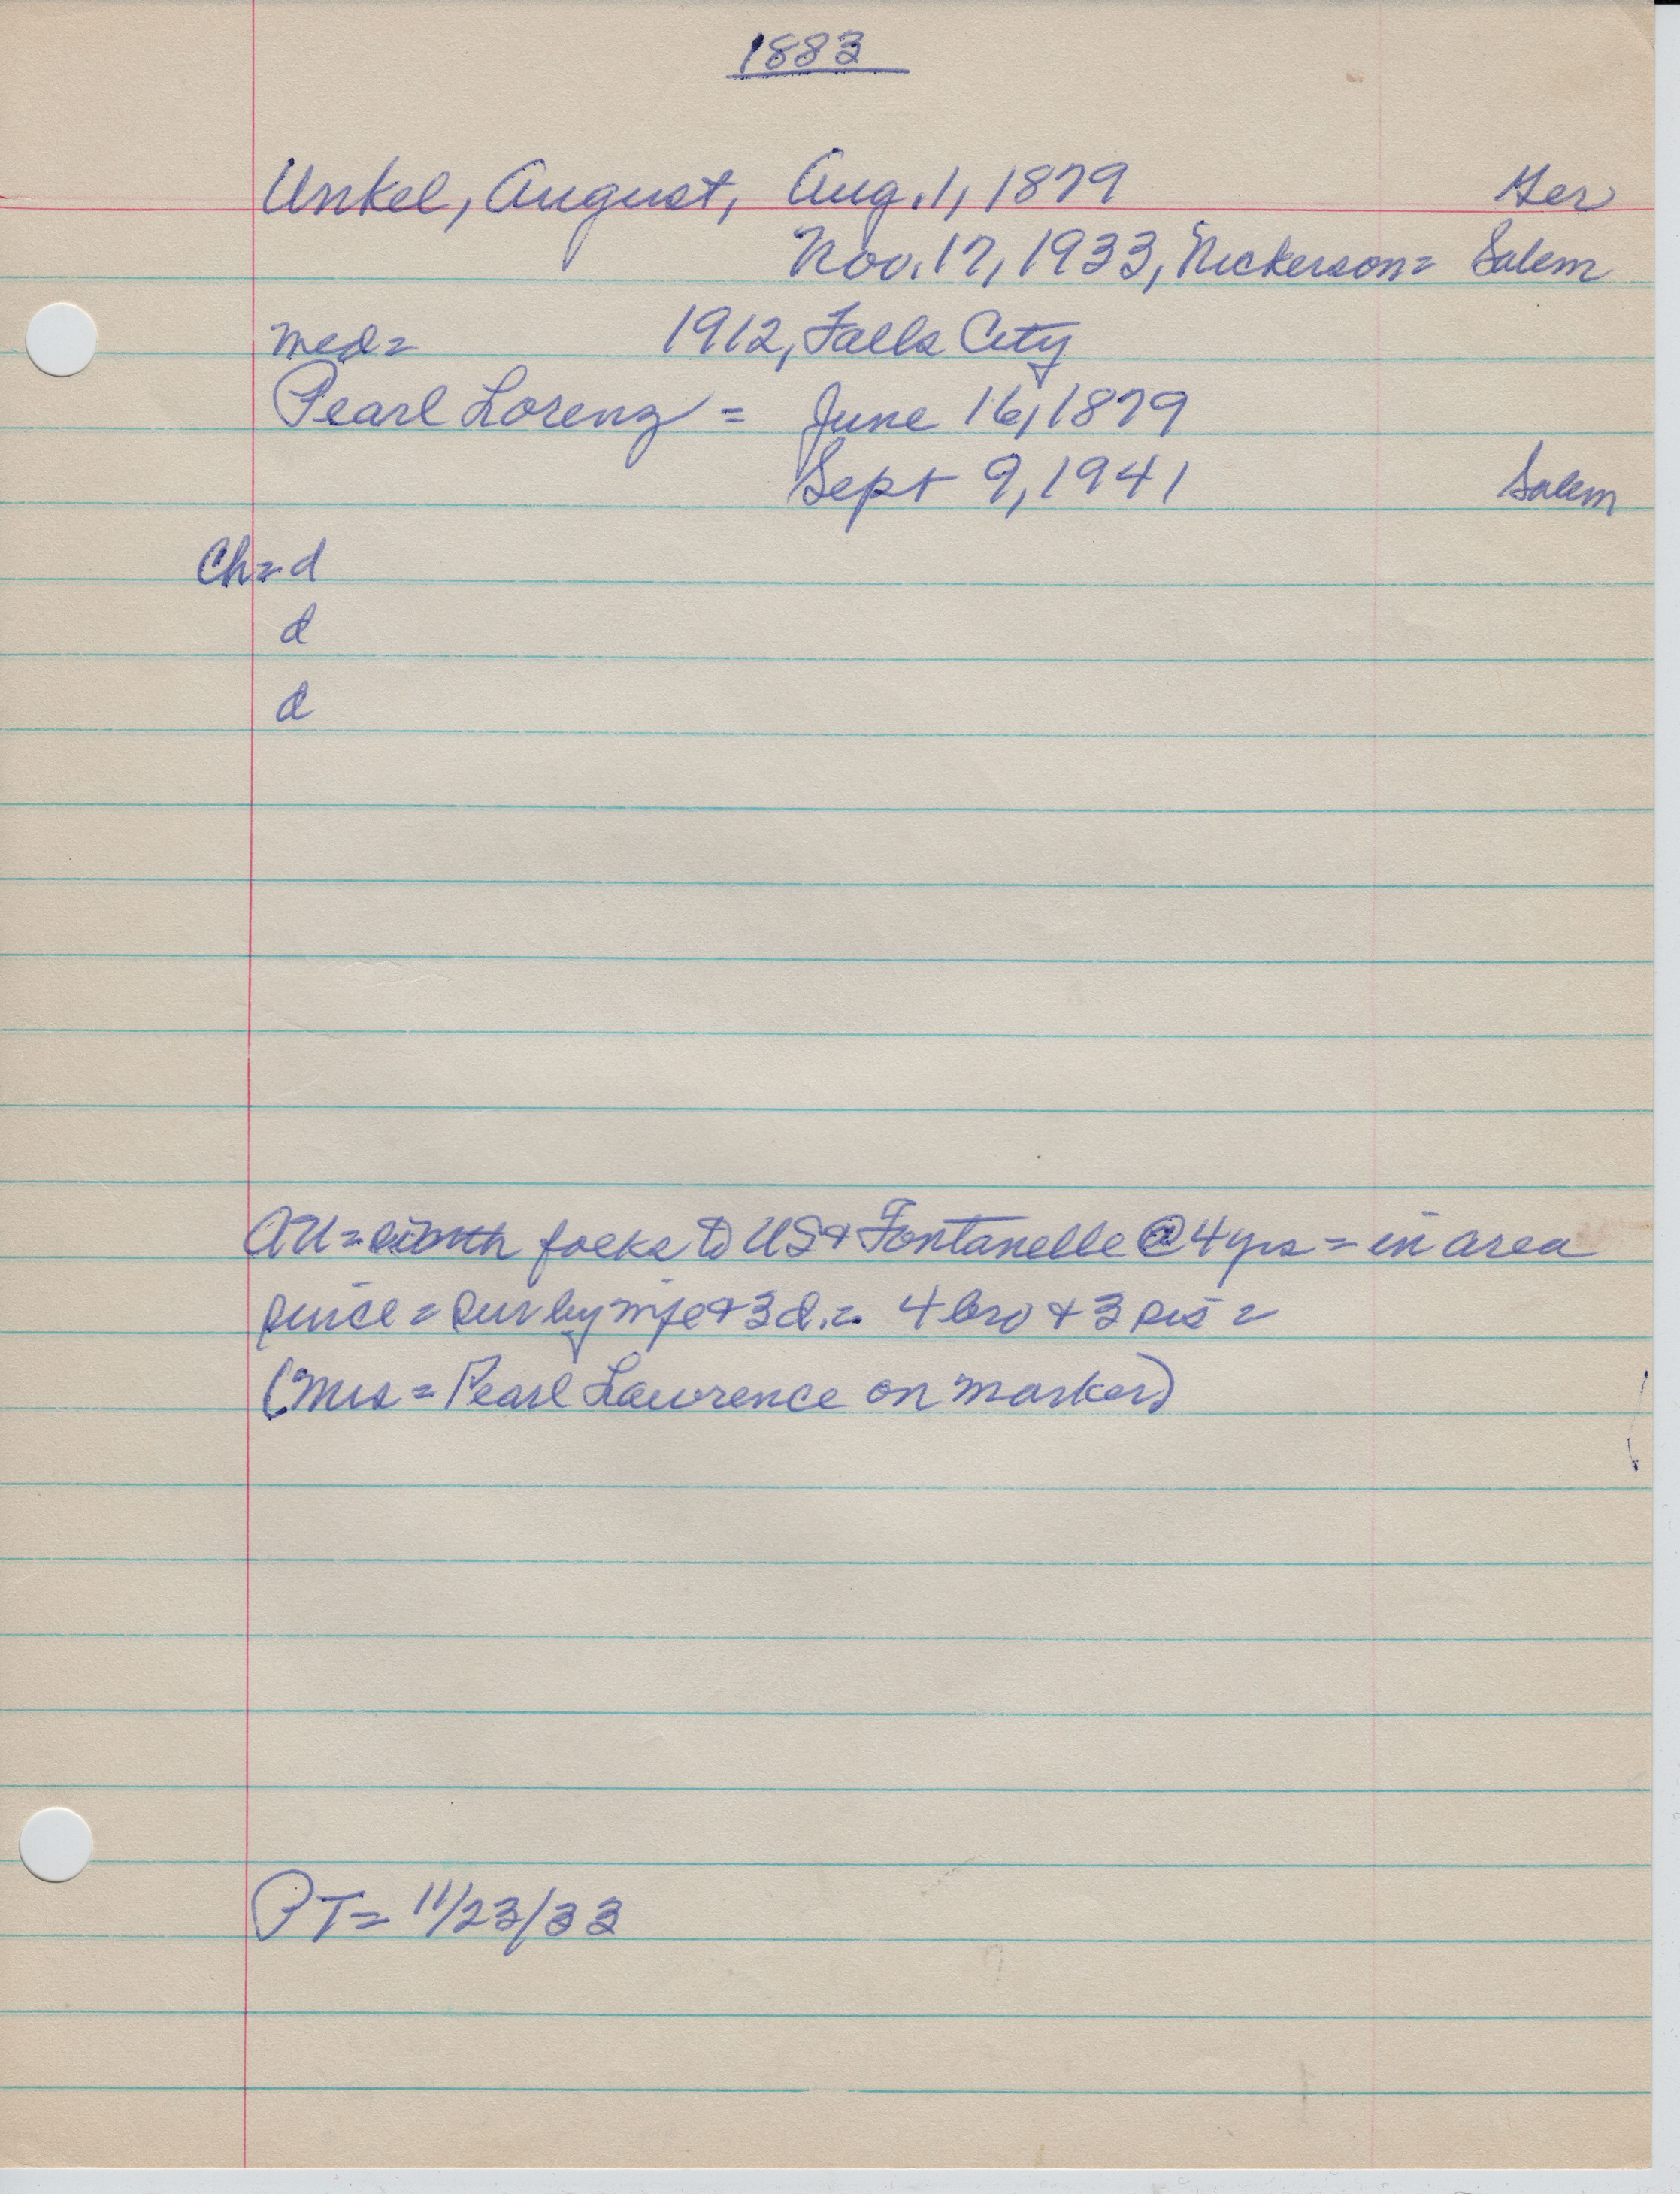 1883
Unkel, August, Aug. 1, 1879 Ger
Nov. 17, 1933, Nickerson = Salem
Med = 1912, Falls City
Pearl Lorenz = June 16, 1879
Sept 9, 1941 Salem
Ch = d
d
d
AU = with folks to US & Fontanelle @ 4 yrs = in area
since = sur by wife & 3 d. = 4 bro & 3 sis =
(Mrs = Pearl Lawrence on marker)
PT = 11/23/33